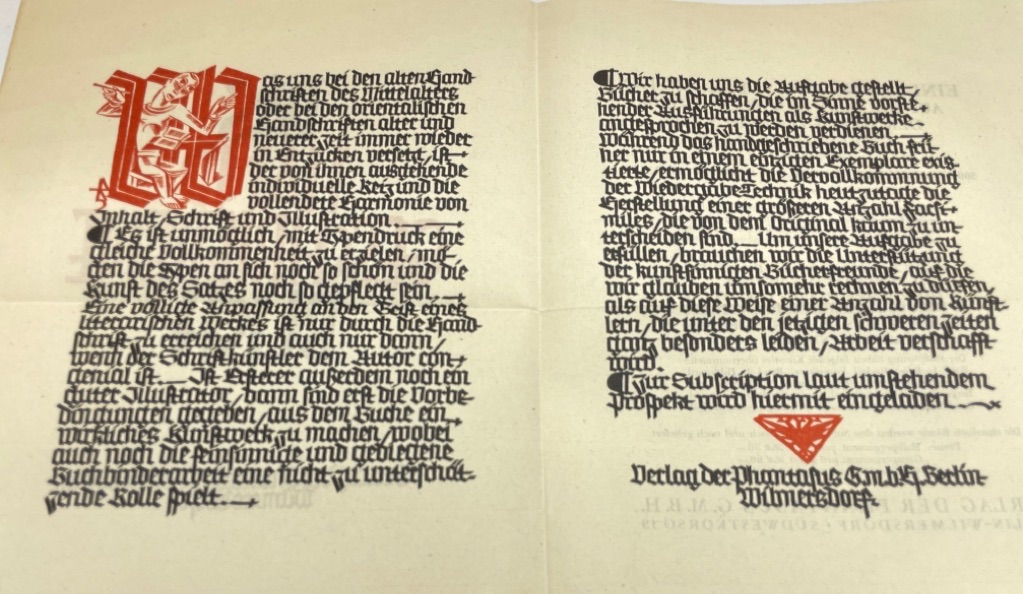 Was uns bei den alten Hand-
schriften des Mittelalters
oder bei den orientalischen
Handschriften alter und
neuerer Zeit immer wieder
in Entzücken versetzt, ist
der von ihnen ausgehende
individuelle Reiz und die
vollendete Harmonie von
Inhalt, Schrift und Illustration
¶ Es ist unmöglich, mit Typendruck eine
gleiche Vollkommenheit zu erzielen, mö-
gen die Typen an sich noch so schön und die
Kunst des Satzes noch so gepflegt sein
Eine völlige Anpassung an den Geist eines
literarischen Werkes ist nur durch die Hand-
schrift zu erreichen und auch nur dann,
wenn der Schriftkünstler dem Autor con-
genial ist. Ist Ersterer außerdem noch ein
guter Illustrator, dann sind erst die Vorbe-
dingungen gegeben, aus dem Buche ein
wirkliches Kunstwerk zu machen, wobei
auch noch die feinsinnige und gediegene
Buchbinderarbeit eine nicht zu unterschät-
zende Rolle spielt.
¶ Wir haben uns die Aufgabe gestellt,
Bücher zu schaffen, die im Sinne vorste-
hender Ausführungen als Kunstwerke
angesprochen zu werden verdienen
während das handgeschriebene Buch frü-
her nur in einem einzigen Exemplare exis-
tierte, ermöglicht die Vervollkommnung
der Wiedergabe Technik heutzutage die
Herstellung einer größeren Anzahl Facsi-
miles, die von dem Original kaum zu un-
terscheiden sind. Um unsere Aufgabe zu
erfüllen, brauchen wir die Unterstützung
der kunstsinnigen Bücherfreunde, auf die
wir glauben umsomehr rechnen zu dürfen,
als auf diese Weise einer Anzahl von Künst-
lern, die unter den jetzigen schweren Zeiten
ganz besonders leiden, Arbeit verschafft
wird.
¶ Zur Subscription laut umstehendem
Prospekt wird hiermit eingeladen.
Verlag der Phantasus G.m.b.H. Berlin
Wilmersdorf.